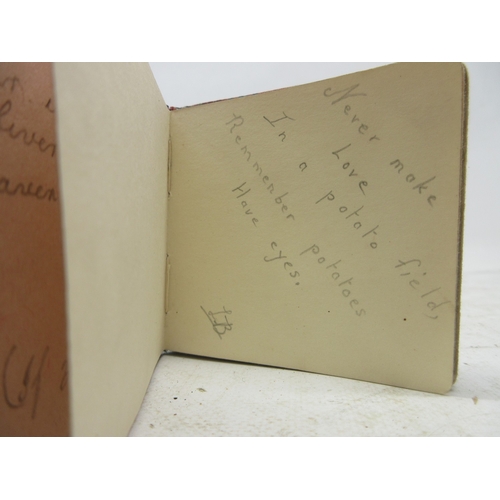 Never make
Love
In a potato field,
Remmember potatoes
Have eyes.
IB